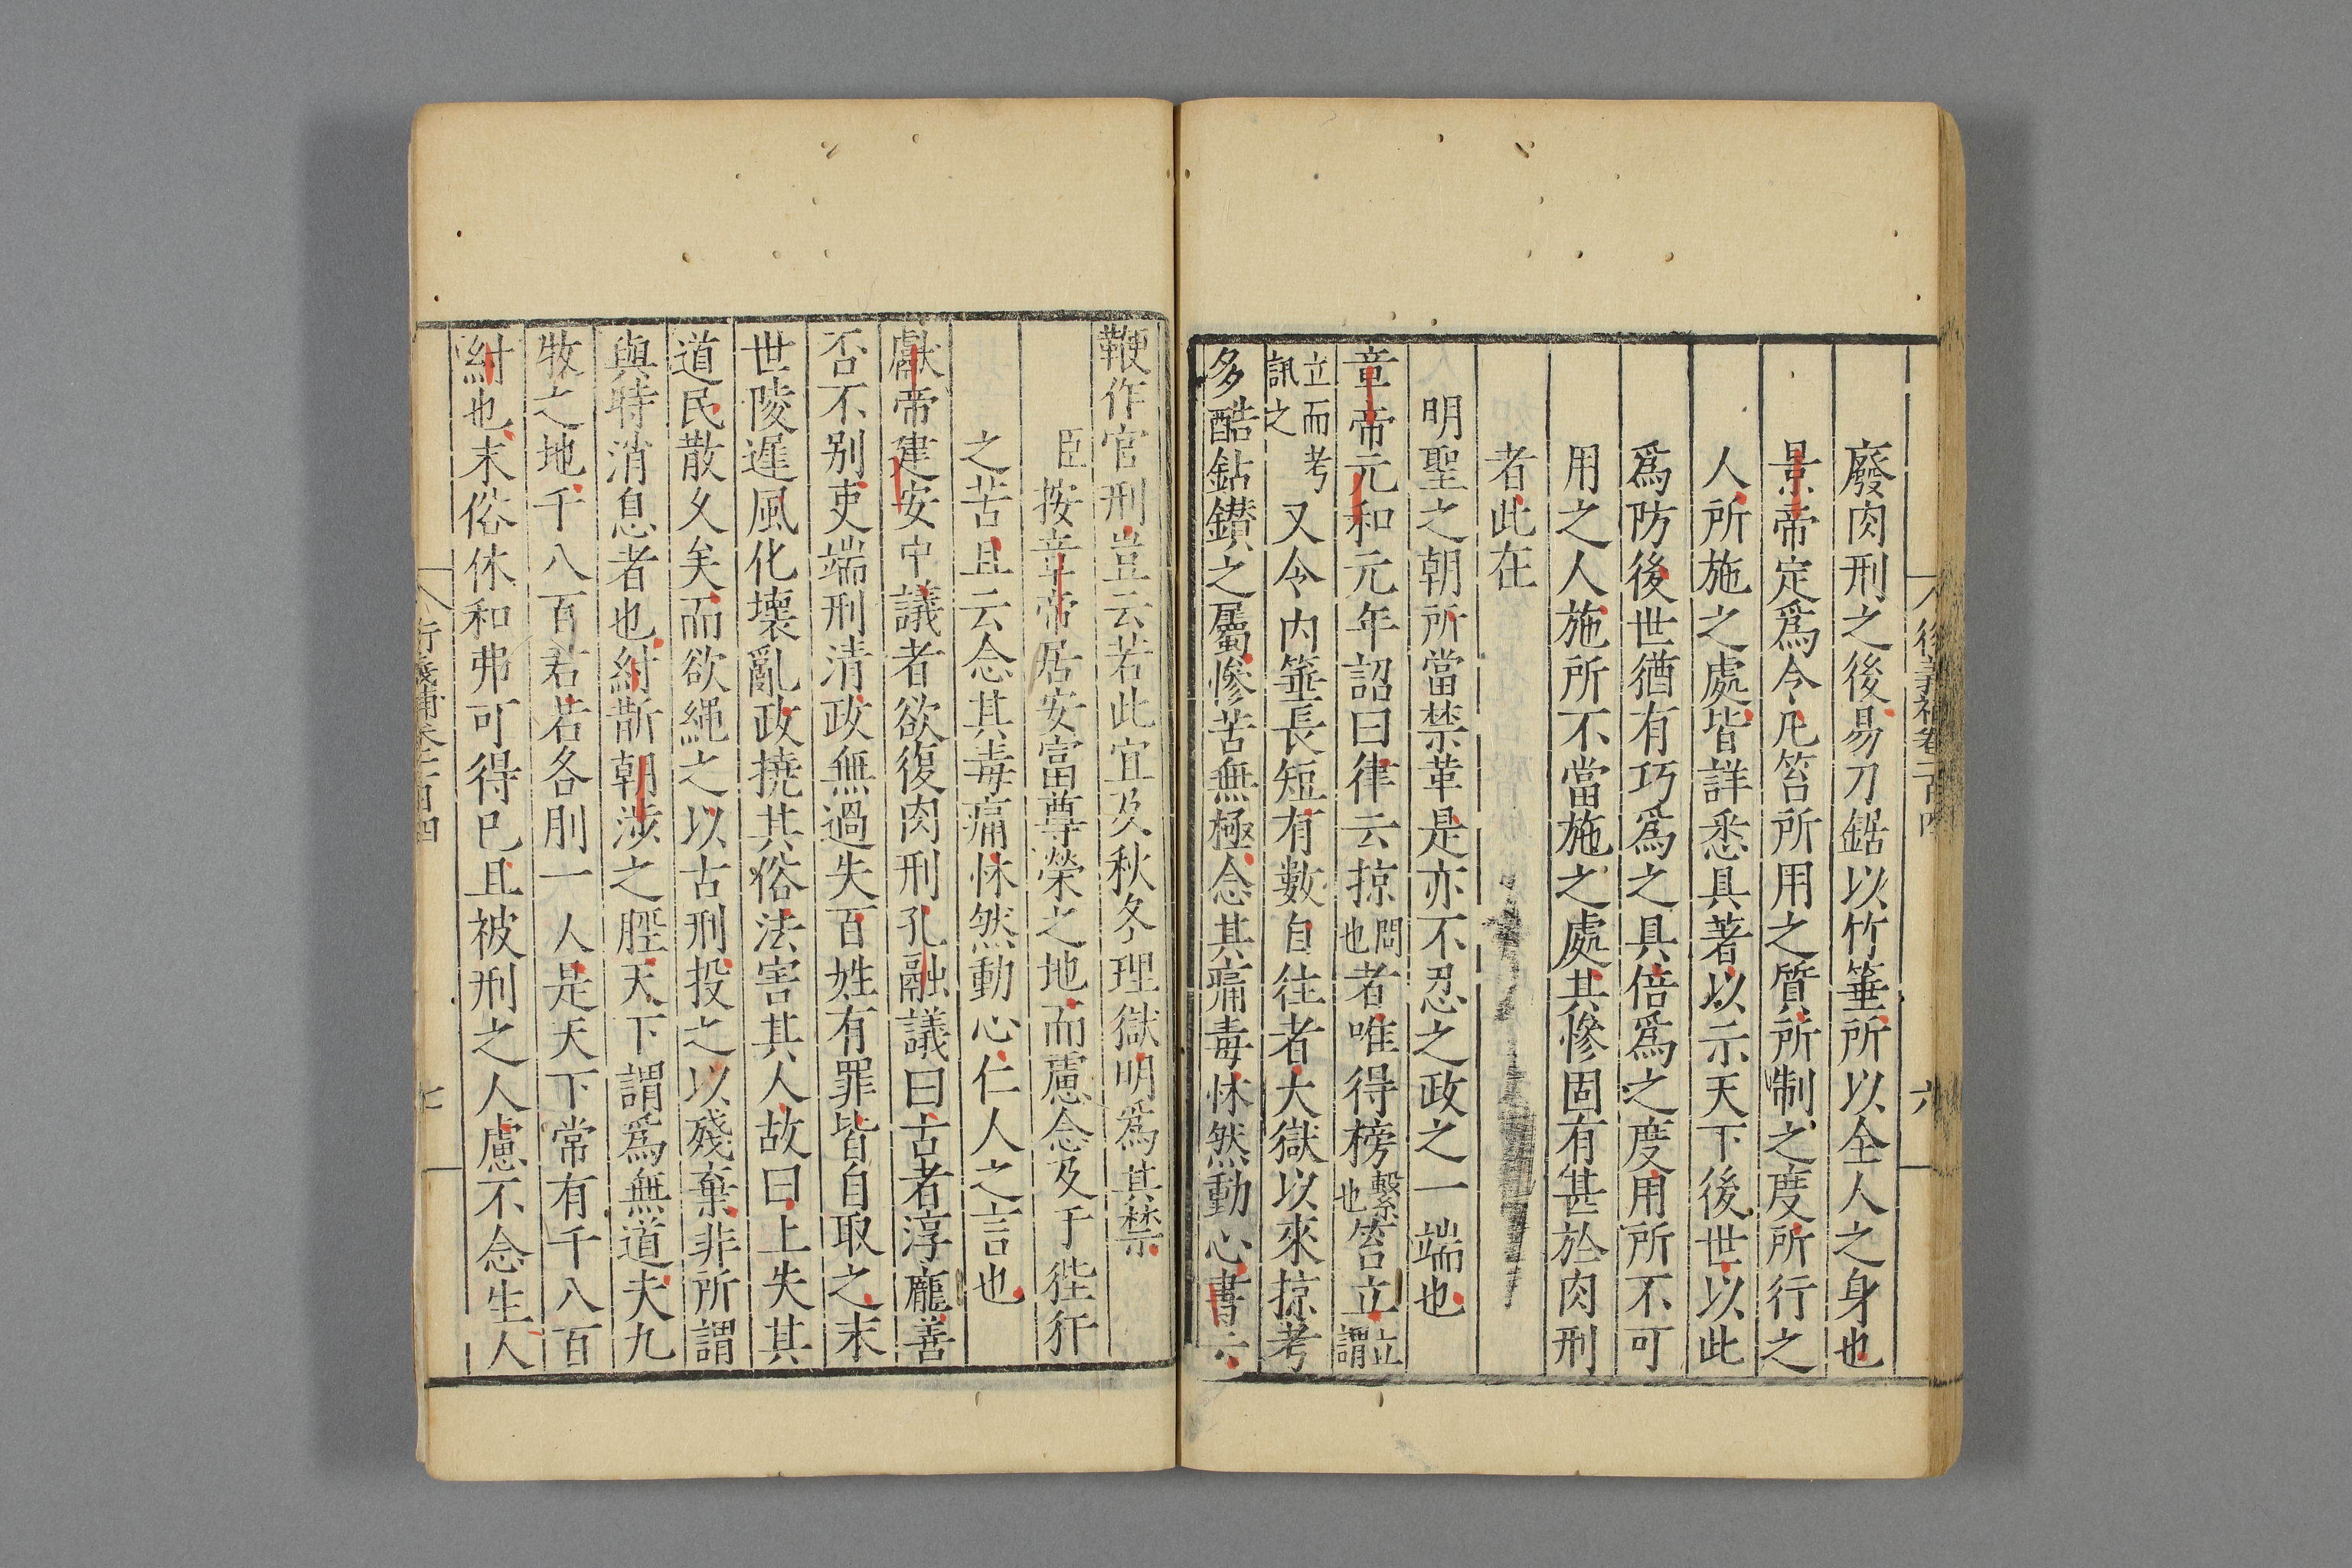 廢肉刑之後易刀鋸以竹箠所以全人之身也
景帝定爲令凡笞所用之質所制之度所行之
人所施之處皆詳悉具著以示天下後世以此
爲防後世猶有巧爲之具倍爲之度用所不可
用之人施所不當施之處其慘固有甚於肉刑
者此在
明聖之朝所當禁革是亦不忍之政之一端也
章帝元和元年詔曰律云掠問也者唯得榜繫也笞立立謂
立而考訊之又令丙箠長短有數自往者大獄以來掠考
多酷鉆鑚之屬慘苦無極念其痛毒怵然動心書云
鞭作官刑豈云若此宜及秋冬理獄明爲其禁
臣按章帝居安富尊榮之地而慮念及于狴犴
之苦且云念其毒痛怵然動心仁人之言也
獻帝建安中議者欲復肉刑孔融議曰古者淳龐善
否不别吏端刑清政無過失百姓有罪皆自取之末
世陵遲風化壞亂政撓其俗法害其人故曰上失其
道民散久矣而欲繩之以古刑投之以殘棄非所謂
與時消息者也紂斮朝涉之脛天下謂爲無道夫九
牧之地千八百君若各刖一人是天下常有千八百
紂也末俗休和弗可得已且被刑之人慮不念生人
六
七